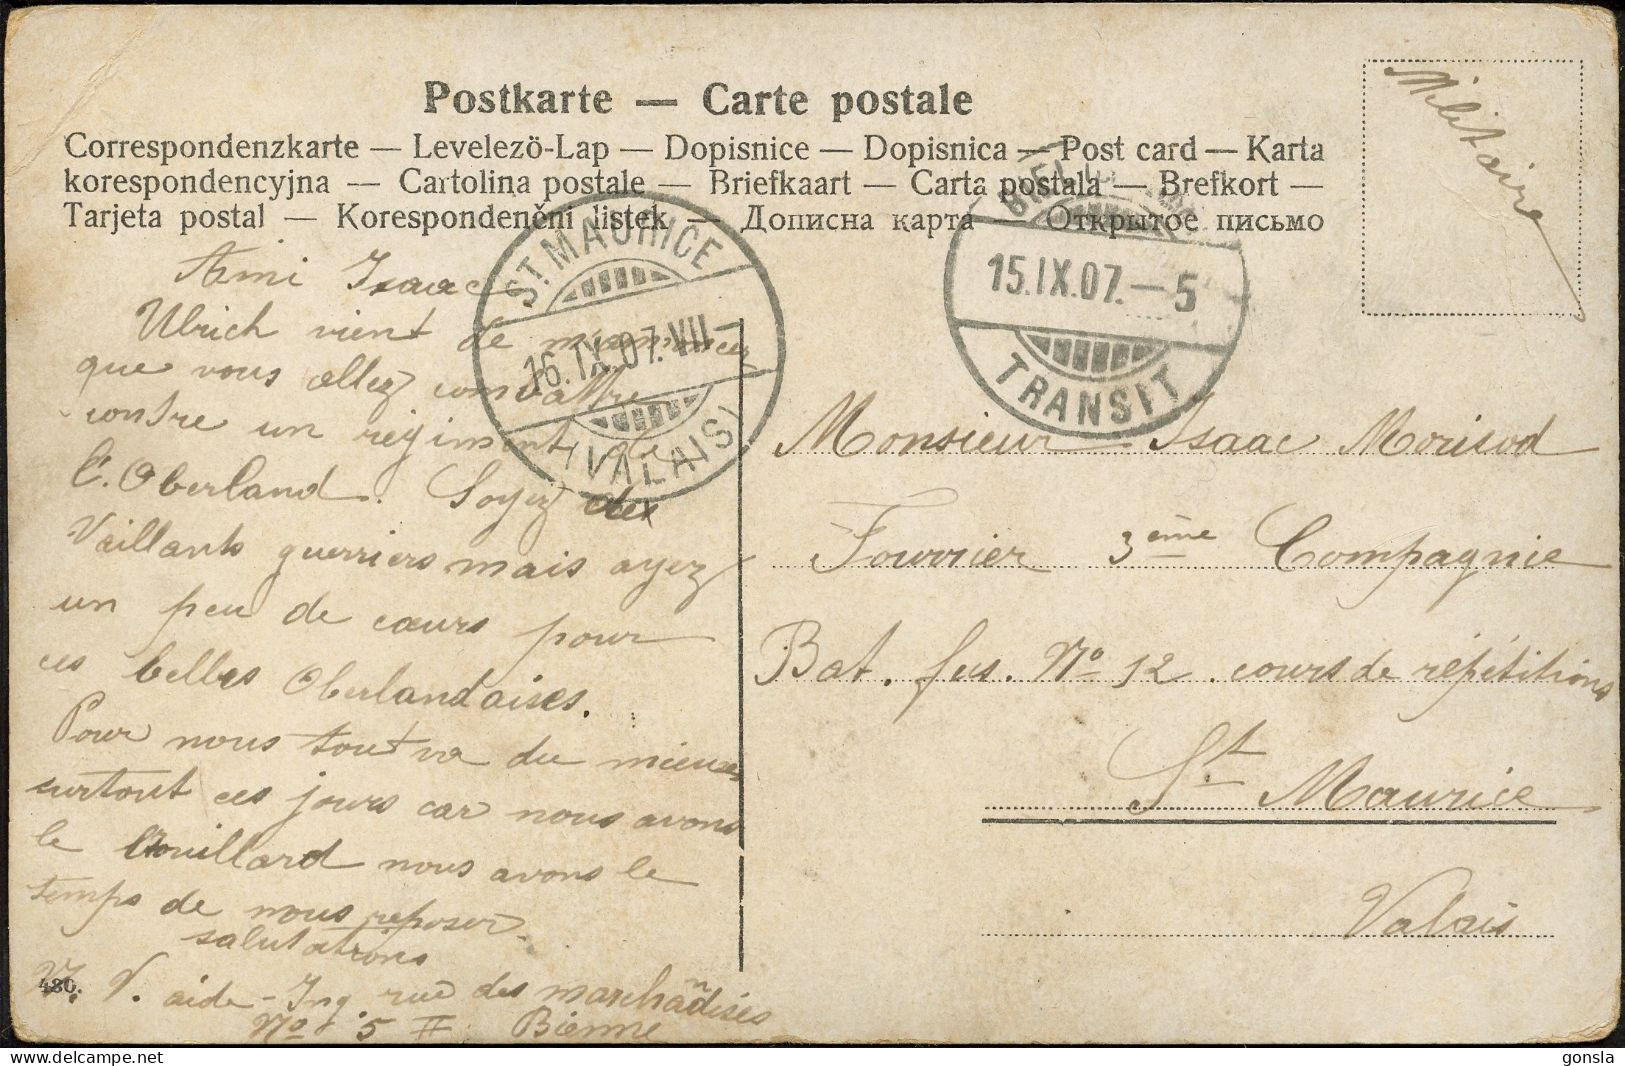 Postkarte — Carte postale
Correspondenzkarte — Levelezö-Lap — Dopisnice — Dopisnica — Post card — Karta
korespondencyjna — Cartolina postale — Briefkaart — Carta postala — Brefkort —
Tarjeta postal — Korespondenčni listek — Дописна карта — Открытое письмо
Militaire
ST. MAURICE
16.IX.07.VII
(VALAIS)
15.IX.07.—5
TRANSIT
Ami Isaac
Ulrich vient de m'annoncer
que vous allez combattre
contre un régiment de
l'Oberland. Soyez des
Vaillants guerriers mais ayez
un peu de cœurs pour
ces belles Oberlandaises.
Pour nous tout va du mieux
surtout ces jours car nous avons
le brouillard nous avons le
temps de nous reposer.
salutations
V. aide-Ing. rue des marchandises
No 5 II Bienne
480.
Monsieur Isaac Morisod
Fourrier 3ème Compagnie
Bat. fus. No 12. cours de répétitions
St Maurice
Valais
gonsla